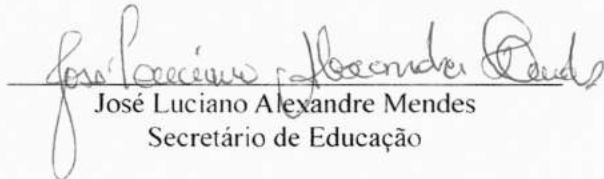 José Luciano Alexandre Mendes
José Luciano Alexandre Mendes
Secretário de Educação